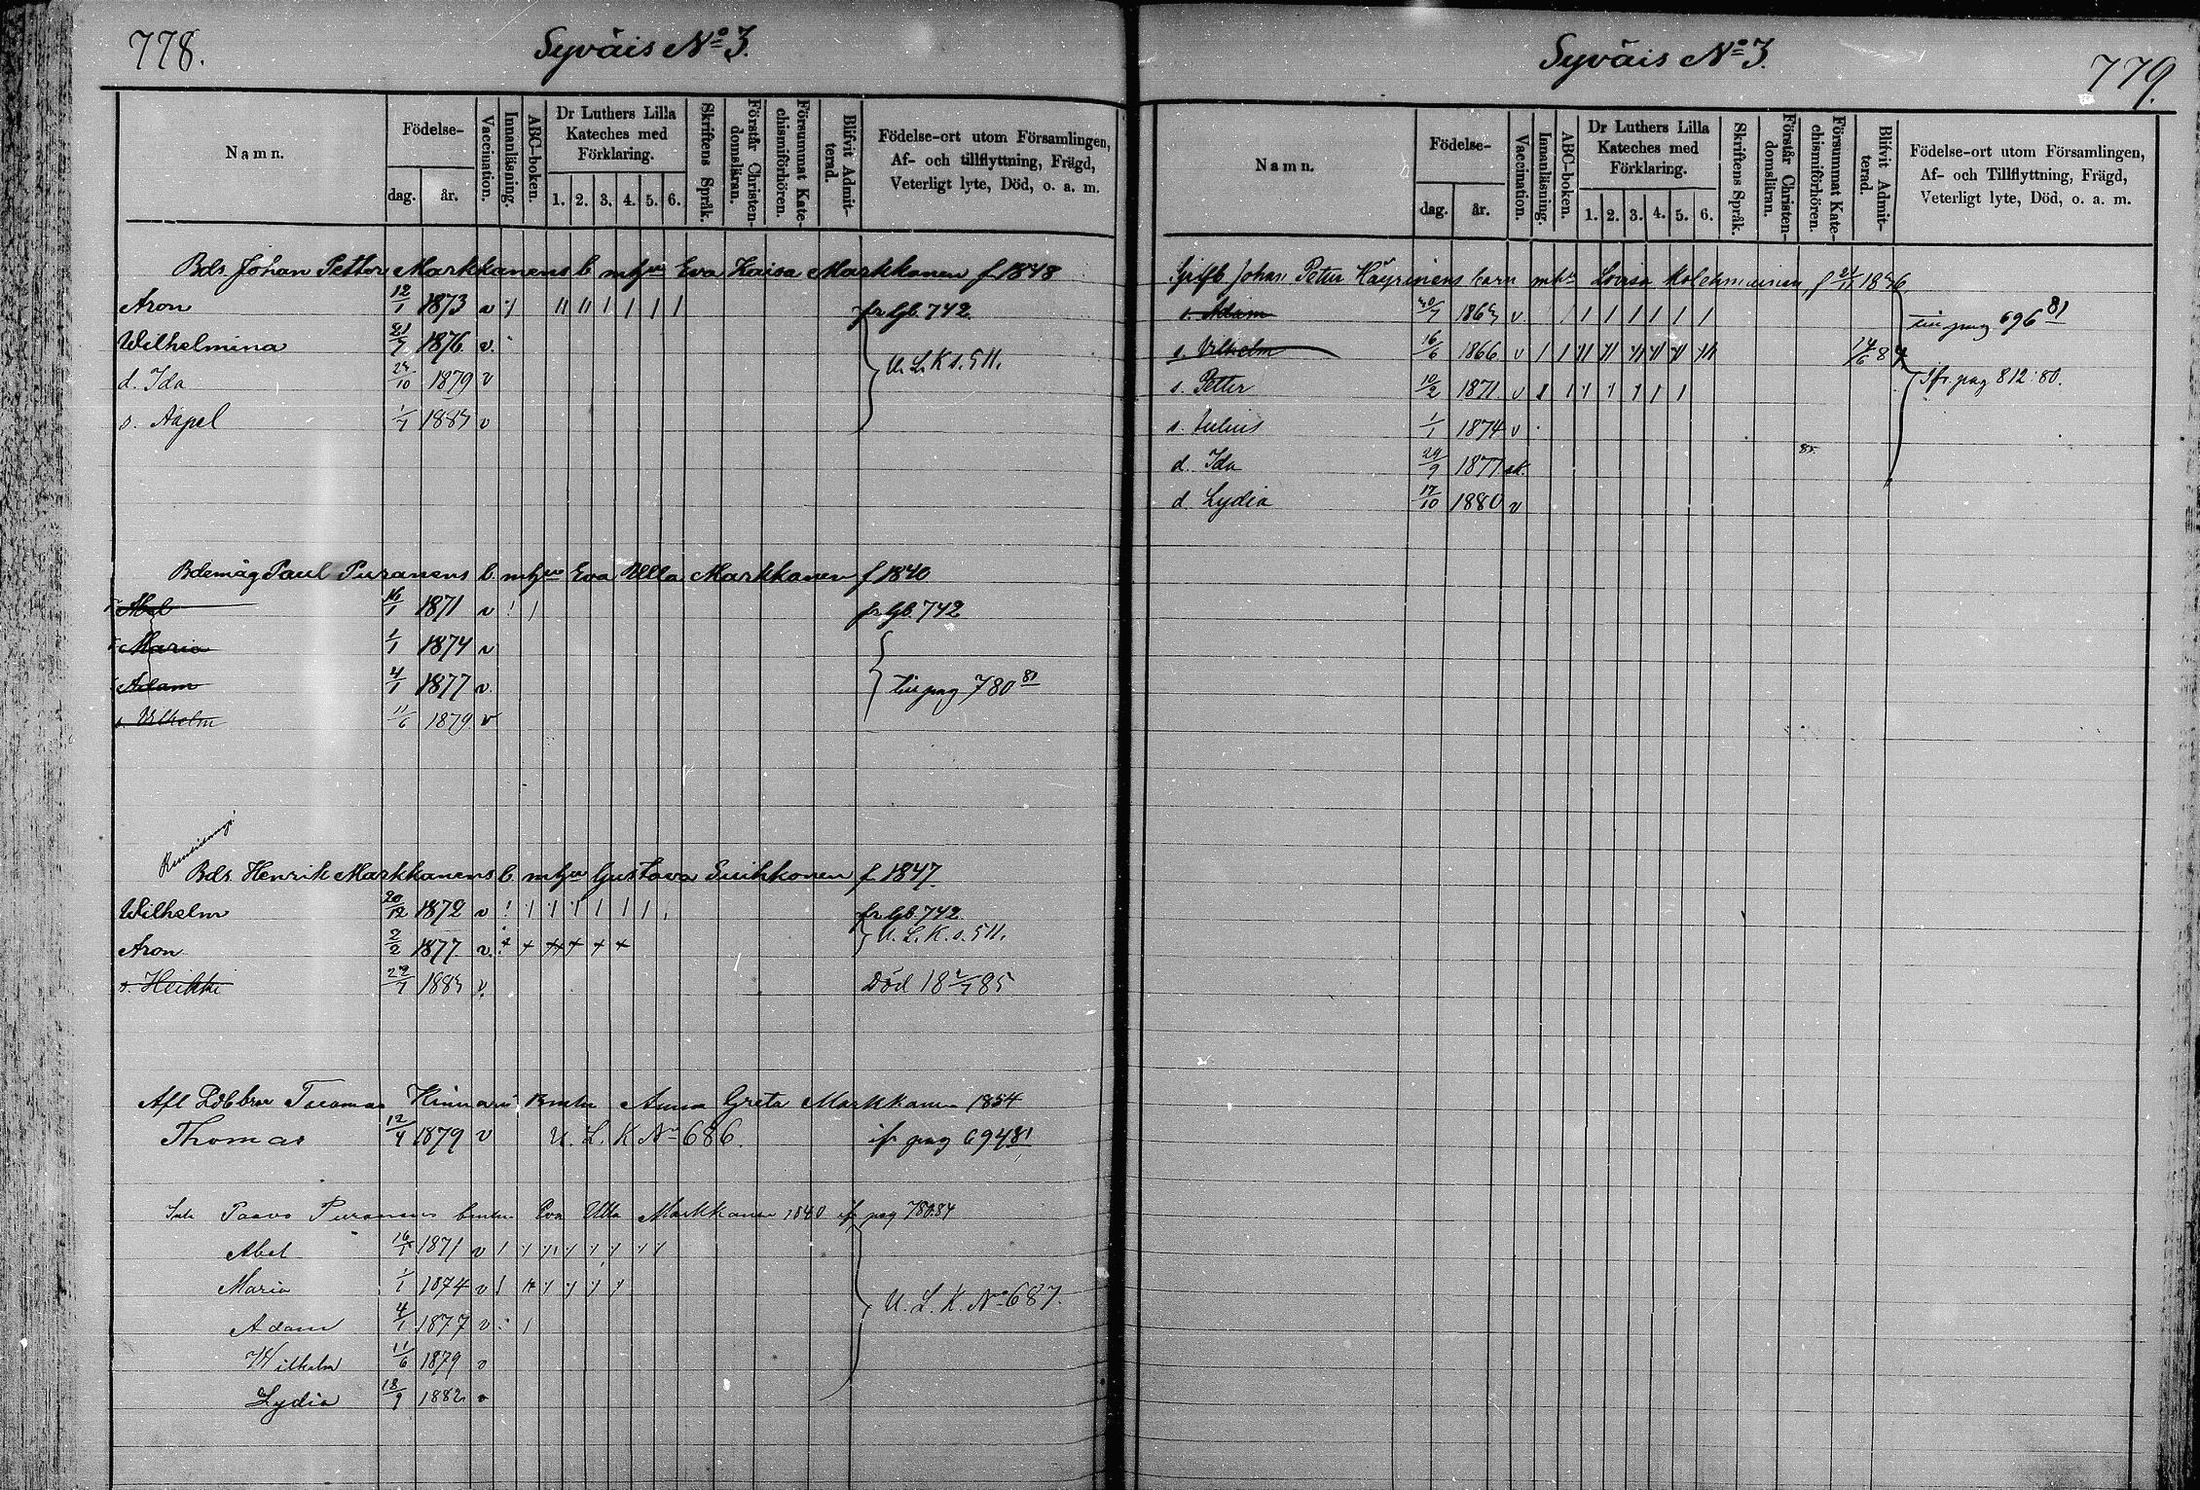 778.
Syväis No 3.
Namn.
Födelse-
dag.
år.
Vaccination.
Innanläsning.
ABC-boken.
Dr Luthers Lilla
Kateches med
Förklaring.
1. 2. 3. 4. 5. 6.
Skriftens Språk.
Förstår Christen-
domsläran.
Försummat Kate-
chismiförhören.
Blifvit Admit-
terad.
Födelse-ort utom Församlingen,
Af- och tillflyttning, Frägd,
Veterligt lyte, Död, o. a. m.
Bds Johan Petter Markkanens b. m hu Eva Kaisa Markkanen f 1848
Aron 12/1 1873 v fr Gb. 742
Wilhelmina 21/7 1876 v.
U. L. K s. 511.
d. Ida 10 1879 v
s. Aapel 1/1 1883 v
Bdemåg Paul Puranens b. m hu Eva Ulla Markkanen f 1840
Abel 16/1 1871 v fr Gb. 742
Maria 1/1 1874 v
Adam 4/1 1877 v. pag 780 81
s. Vilhelm 11/6 1879 v
Bds Henrik Markkanens b. m hu Gustava Suihkonen f 1847
Wilhelm 20/12 1872 v fr Gb. 742
U. L. K. s. 511.
Aron 2/2 1877 v.
s. Heikki 1883 v. Död 18 85
Afl Thomas Anna Greta Markkanen 1854
Thomas 12/4 1879 v U. L. K No 686. ifr pag 694 81
Paavo Puranens Eva Ulla Markkanen 1840 ifr pag 780.84
Abel 16/1 1871 v
Maria 1/1 1874 v
U. L. K. No 687.
Adam 4/1 1877 v
Wilhelm 11/6 1879 v
Lydia 18/9 1882 v
Syväis No 3.
779.
Namn.
Födelse-
dag.
år.
Vaccination.
Innanläsning.
ABC-boken.
Dr Luthers Lilla
Kateches med
Förklaring.
1. 2. 3. 4. 5. 6.
Skriftens Språk.
Förstår Christen-
domsläran.
Försummat Kate-
chismiförhören.
Blifvit Admit-
terad.
Födelse-ort utom Församlingen,
Af- och Tillflyttning, Frägd,
Veterligt lyte, Död, o. a. m.
Johan Peter Häyrinens barn m hu Lovisa Kolehmainen, f
s. Adam 1863 v pag 696 81
s. Vilhelm 16/6 1866 v
s. Petter 10/2 1871 v ifr. pag 812.80.
s. Julius 1/1 1874 v
85.
d. Ida 24/9 1877 sk.
d. Lydia 17/10 1880 v